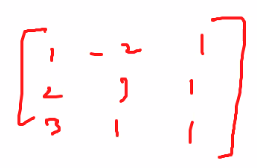 1 -2 1
2 3 1
3 1 1